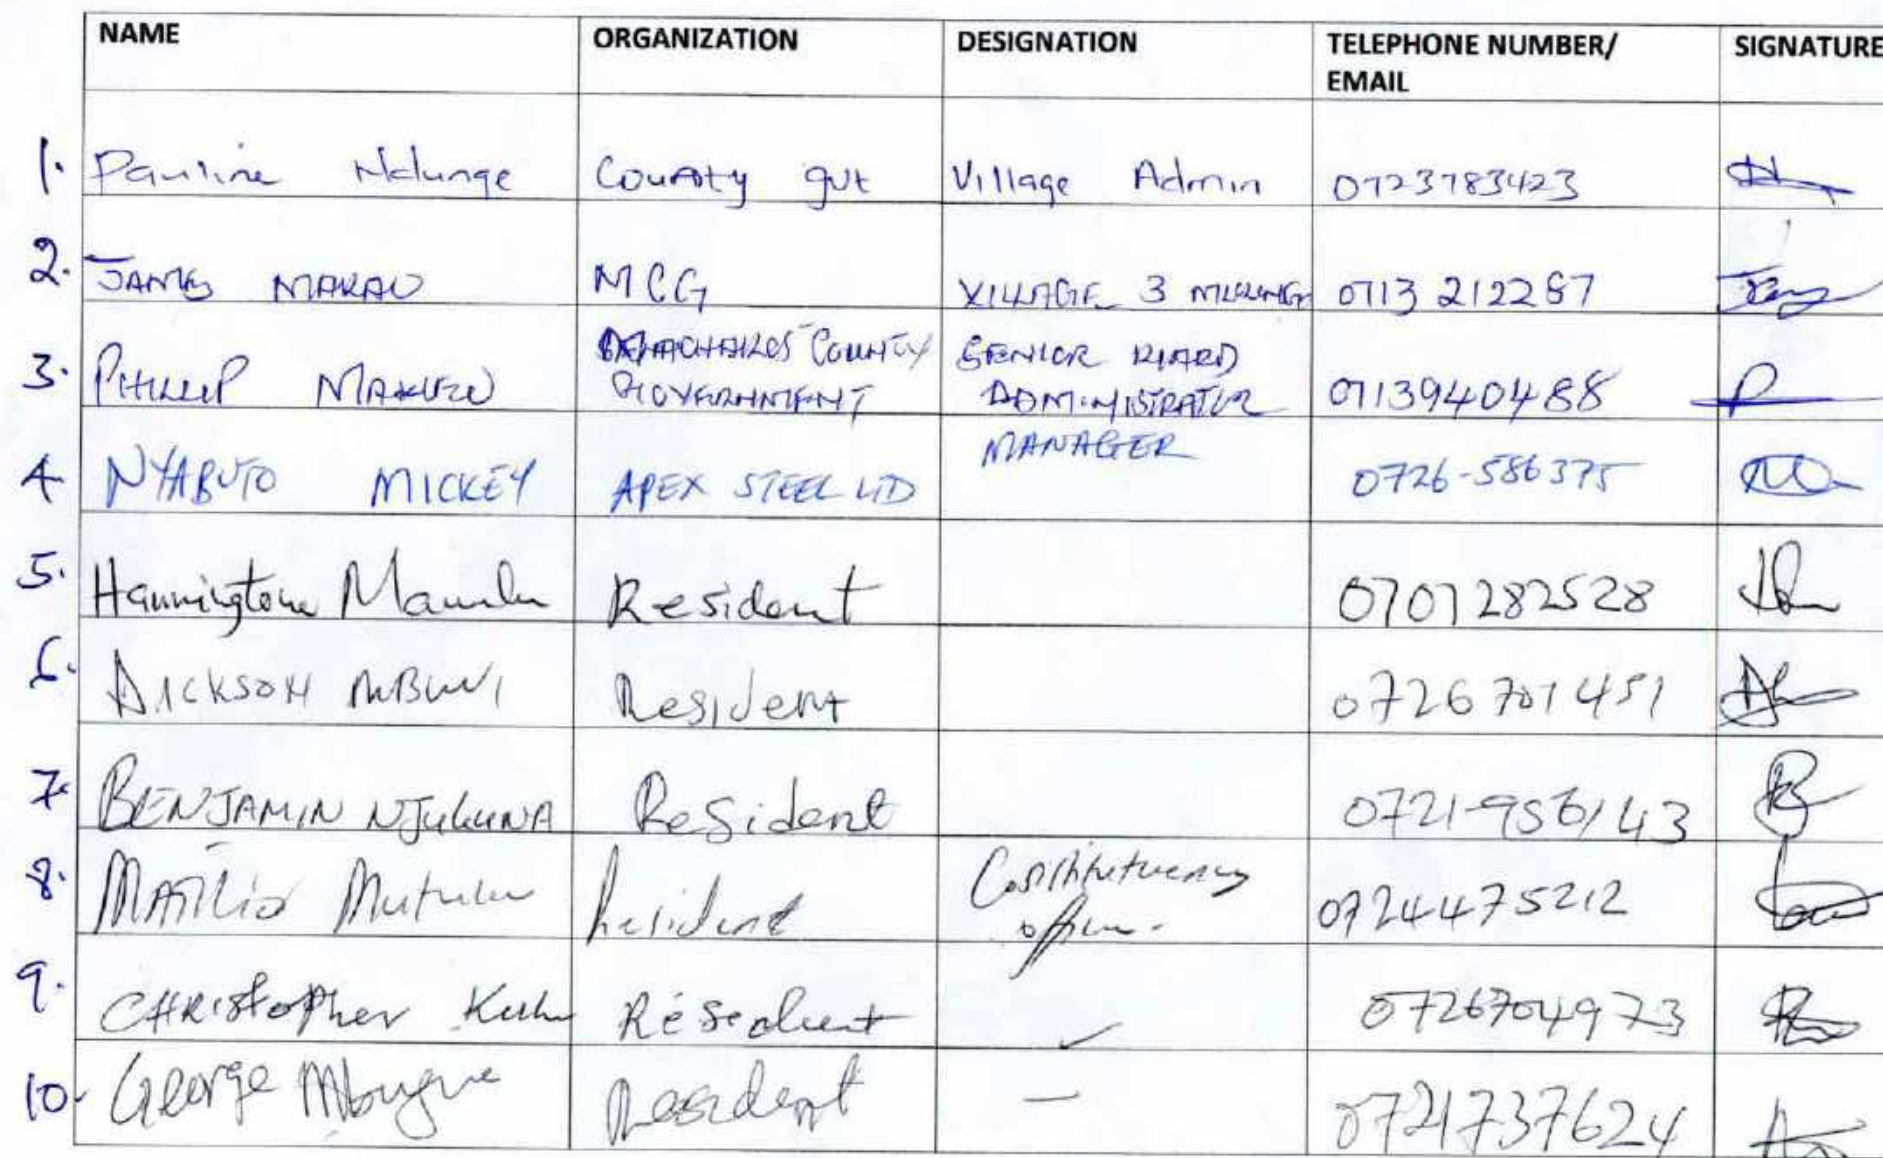 NAME ORGANIZATION DESIGNATION TELEPHONE NUMBER/ SIGNATURE
EMAIL
1. Pauline Ndunge County gvt Village Admin 0723783423
2. JAMES MAKAU MCG VILLAGE 3 0713 212287
3. PHILLIP MACHAKOS COUNTY SENIOR WARD
GOVERNMENT ADMINISTRATOR 0713940488
4 NYABUTO MICKEY APEX STEEL LTD MANAGER 0726-586375
5. Hannington Resident 0707282528
6. DICKSON MBUVI Resident 0726701451
7. BENJAMIN NJUGUNA Resident 0721-956143
8. Mutuku Resident Constitutuency
office - 0724475212
9. CHRIStopher Resedent 0726704973
10. George Mbugua Resident — 0721737624